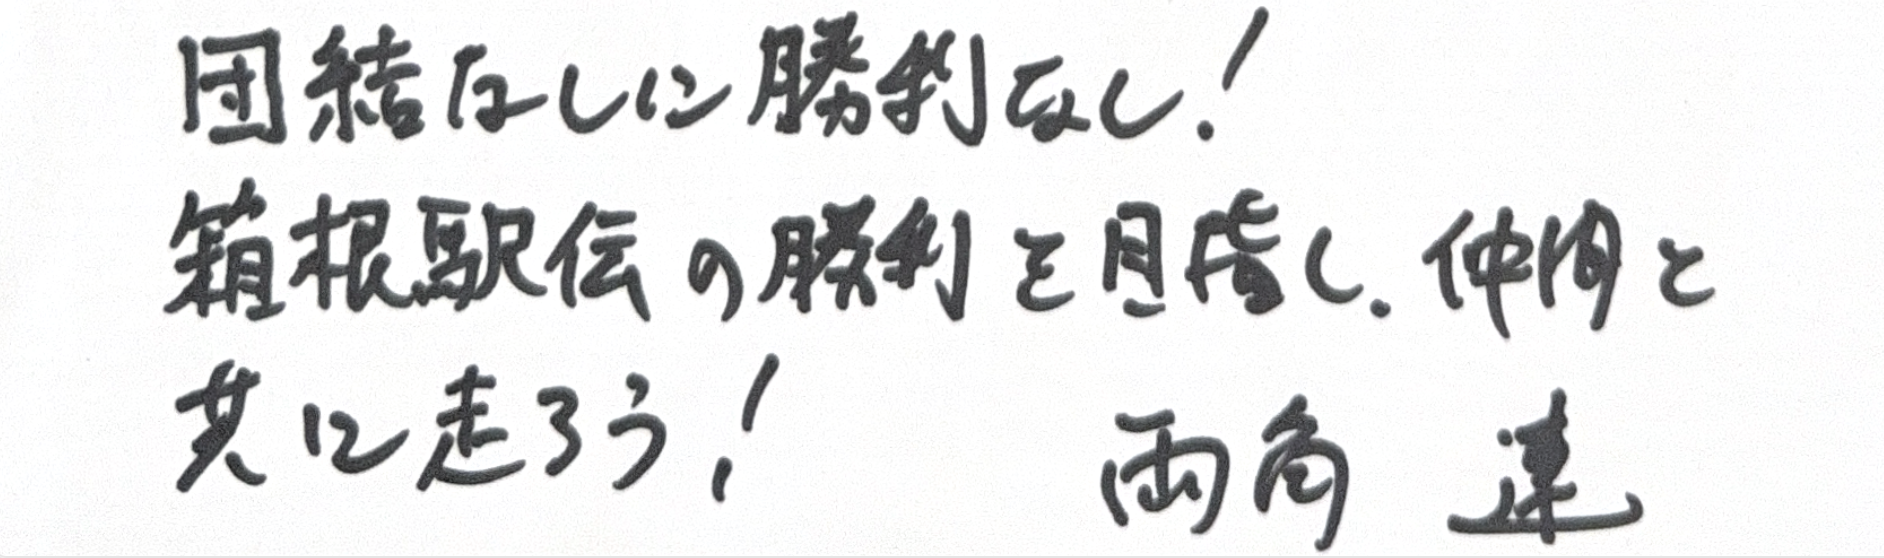 団結なしに勝利なし!
箱根駅伝の勝利を目指し、仲間と
共に走ろう!
両角 速